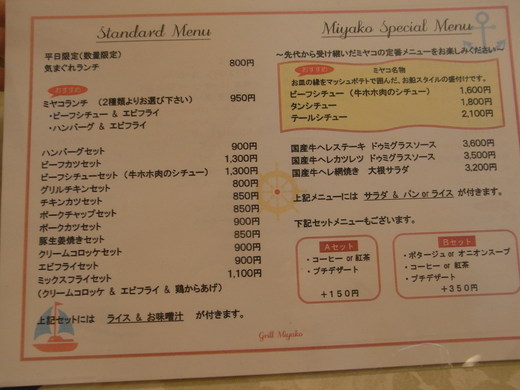 Standard Menu
平日限定(数量限定)
気まぐれランチ 800円
おすすめ
ミヤコランチ (2種類よりお選び下さい) 950円
・ビーフシチュー & エビフライ
・ハンバーグ & エビフライ
ハンバーグセット 900円
ビーフカツセット 1,300円
ビーフシチューセット(牛ホホ肉のシチュー) 1,300円
グリルチキンセット 800円
チキンカツセット 850円
ポークチャップセット 850円
ポークカツセット 900円
豚生姜焼きセット 850円
クリームコロッケセット 900円
エビフライセット 900円
ミックスフライセット 1,100円
(クリームコロッケ & エビフライ & 鶏からあげ)
上記セットには ライス & お味噌汁 が付きます。
Miyako Special Menu
～先代から受け継いだミヤコの定番メニューをお楽しみください～
おすすめ ミヤコ名物
お皿の縁をマッシュポテトで囲んだ、お船スタイルの盛付けです。
ビーフシチュー (牛ホホ肉のシチュー) 1,600円
タンシチュー 1,800円
テールシチュー 2,100円
国産牛ヘレステーキ ドゥミグラスソース 3,600円
国産牛ヘレカツレツ ドゥミグラスソース 3,500円
国産牛ヘレ網焼き 大根サラダ 3,200円
上記メニューには サラダ & パン or ライス が付きます。
下記セットメニューもございます。
Aセット
・コーヒー or 紅茶
・プチデザート
＋150円
Bセット
・ポタージュ or オニオンスープ
・コーヒー or 紅茶
・プチデザート
＋350円
Grill Miyako